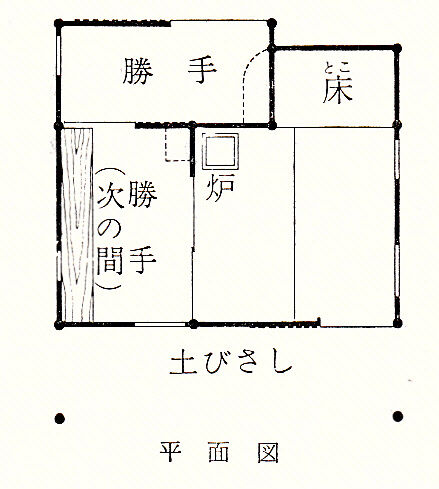 勝手
床
とこ
炉
勝手
(次の間)
土びさし
平面図